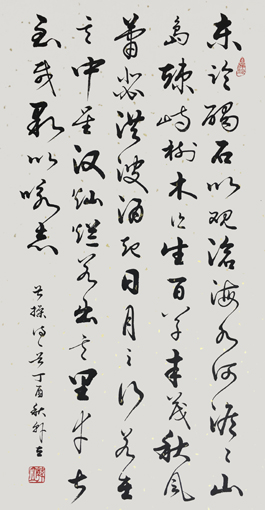 东临碣石以观沧海水何澹澹山
岛竦峙树木丛生百草丰茂秋风
萧瑟洪波涌起日月之行若出
其中星汉灿烂若出其里幸甚
至哉歌以咏志
曹操诗一首丁酉秋